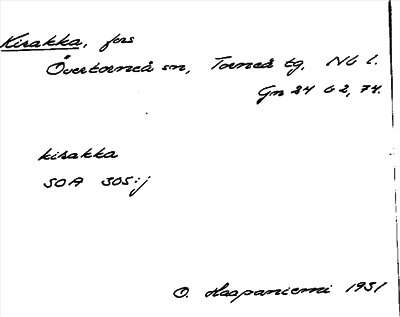 Kirakka, fors
Övertorneå sn, Torneå tg, Nb l.
Gn 24 G 2, 74.
kirakka
SOA 305:j
O. Haapaniemi 1931